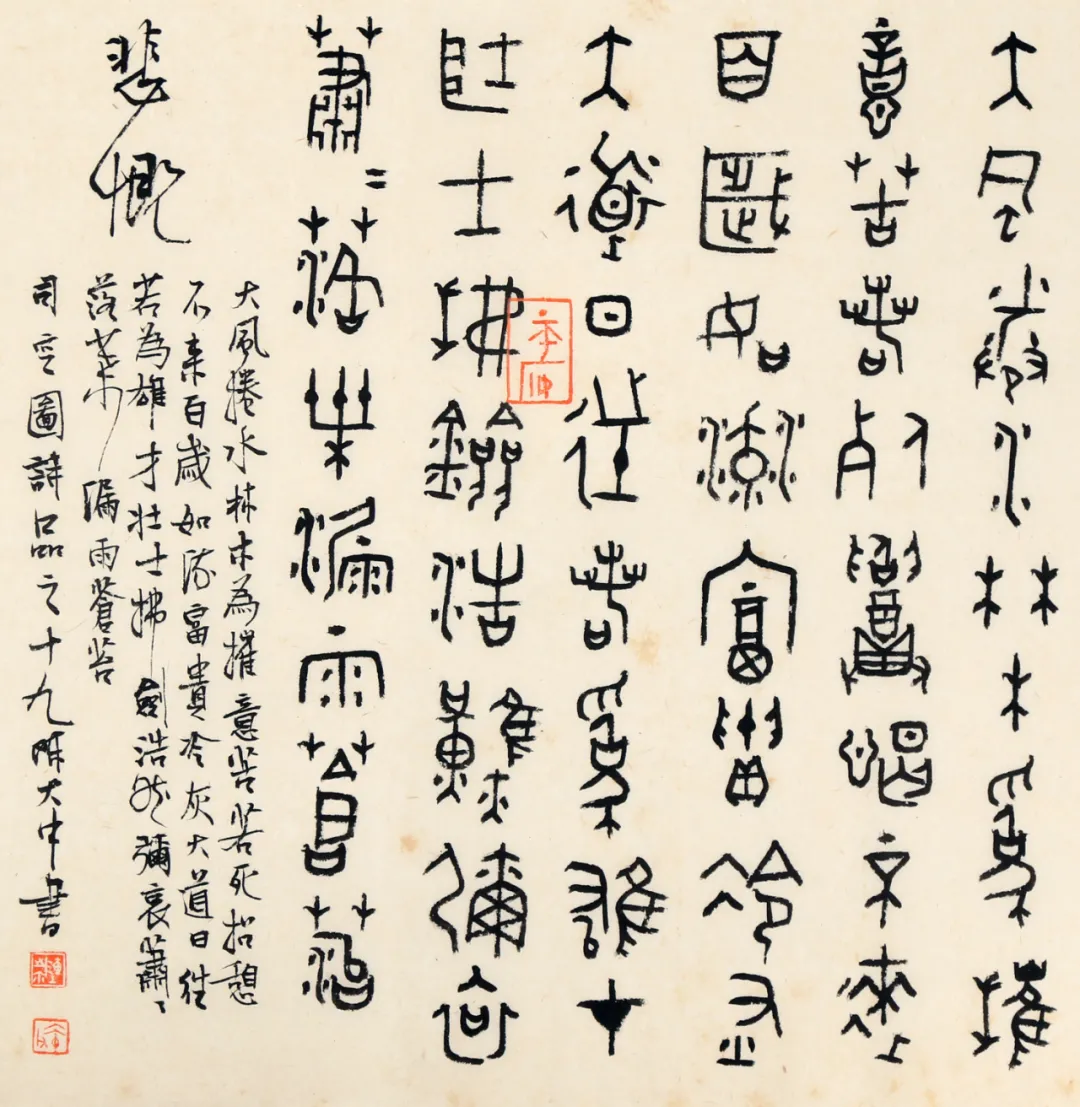 大風捲水林木為摧
意苦若死招憩不來
百歲如流富貴冷灰
大道日往若為雄才
壯士拂劍浩然彌哀
蕭〻落葉漏雨蒼苔
悲慨
大風捲水林木為摧意苦若死招憩
不來百歲如流富貴冷灰大道日往
若為雄才壯士拂劍浩然彌哀蕭〻
落葉漏雨蒼苔
司空圖詩品之十九陳大中書